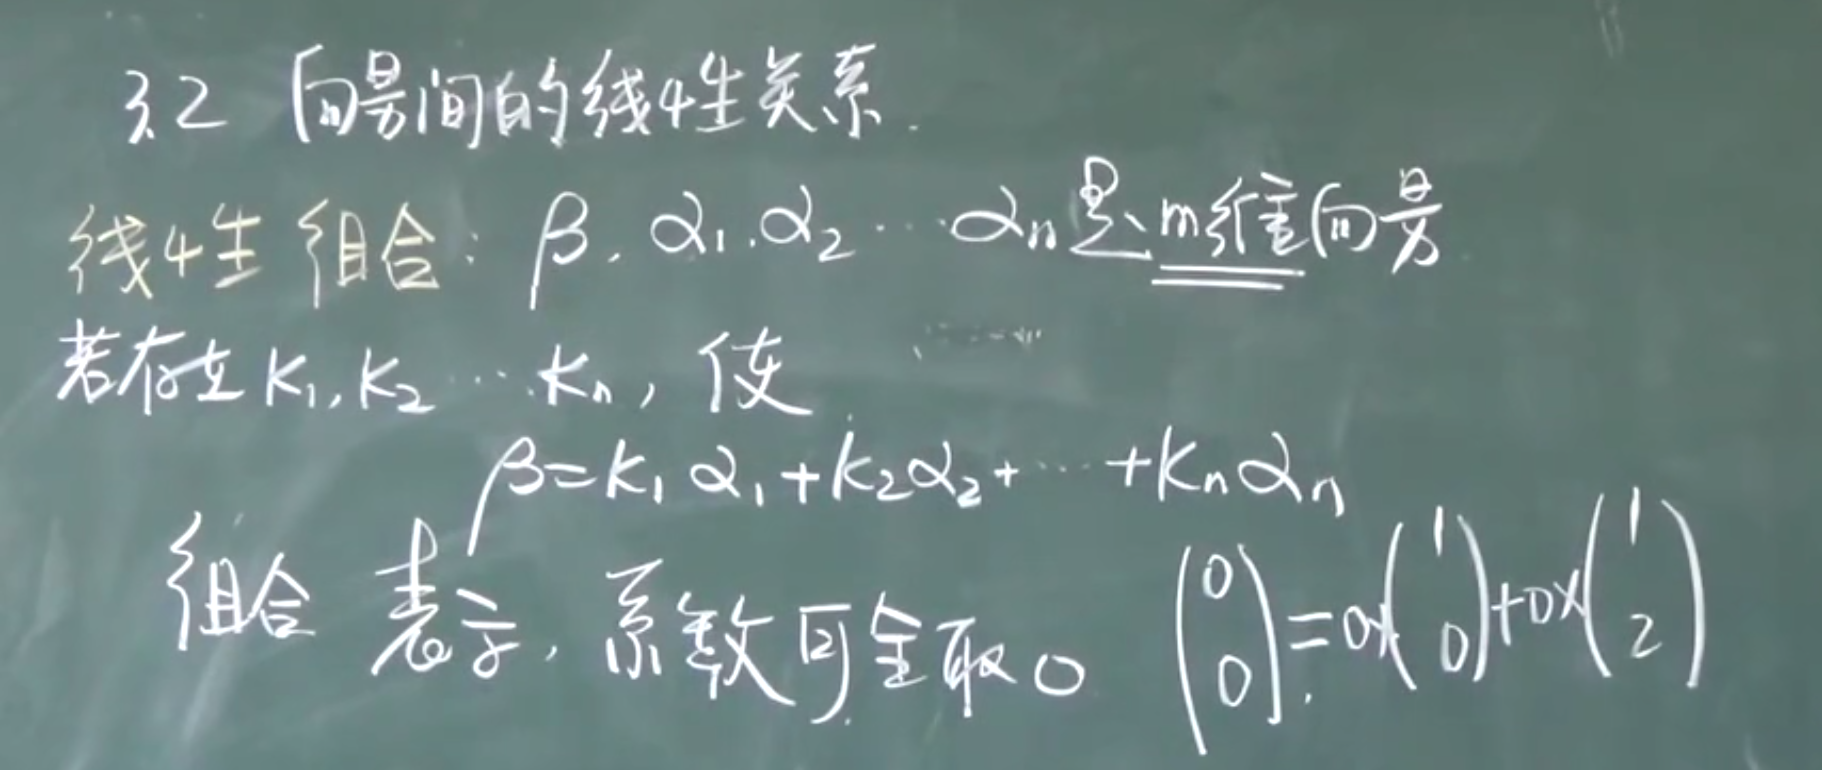 3.2 向量间的线性关系.
线性组合: β, α₁, α₂ ⋯ αₙ是m维向量
若存在 k₁, k₂ ⋯ kₙ, 使
β=k₁α₁+k₂α₂+⋯+kₙαₙ
组合 表示, 系数可全取0 (0 0)=0×(1 0)+0×(1 2)